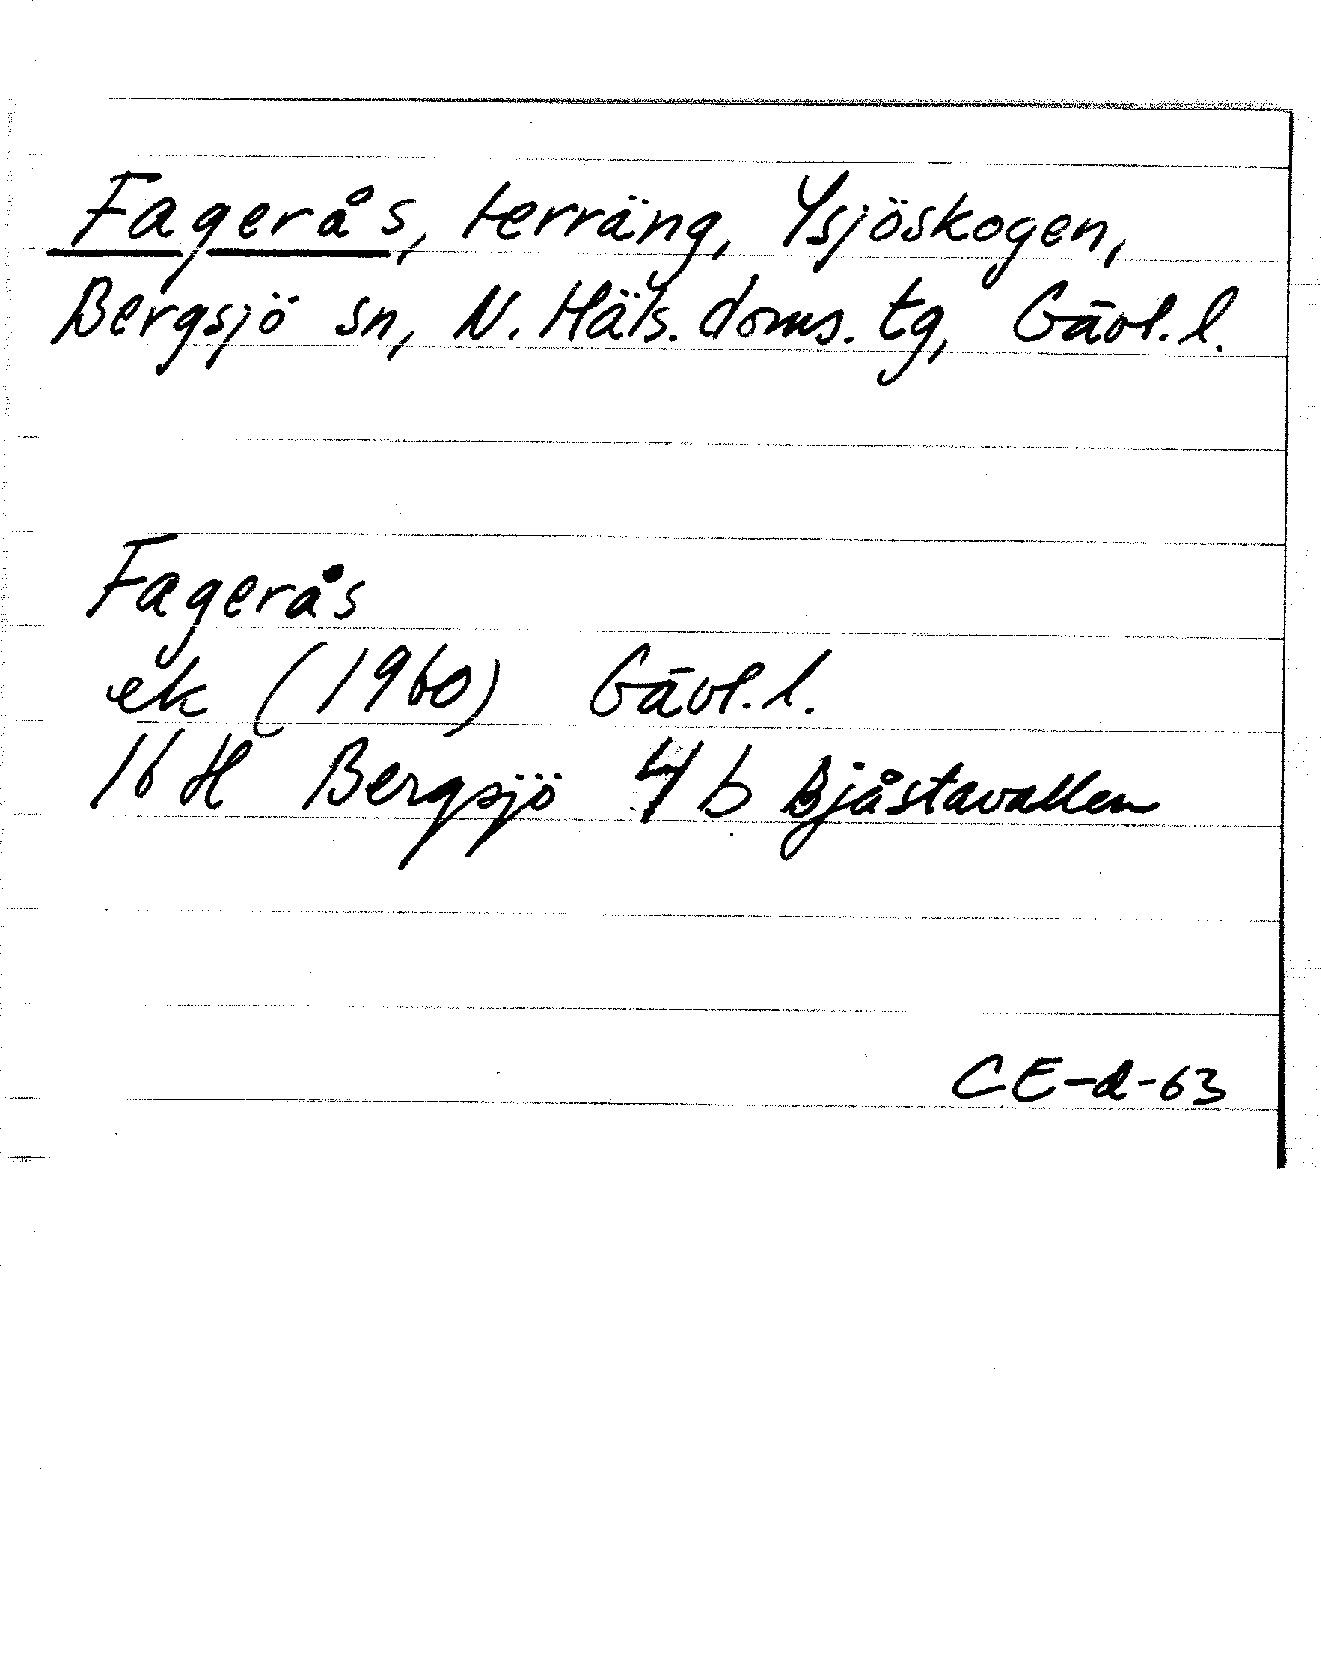 Fagerås, terräng, Ysjöskogen,
Bergsjö sn, N. Häls. doms. tg, Gävl. l.
Fagerås
ek (1960) Gävl. l.
16 H Bergsjö 4 b Bjåstavallen
CE-d-63